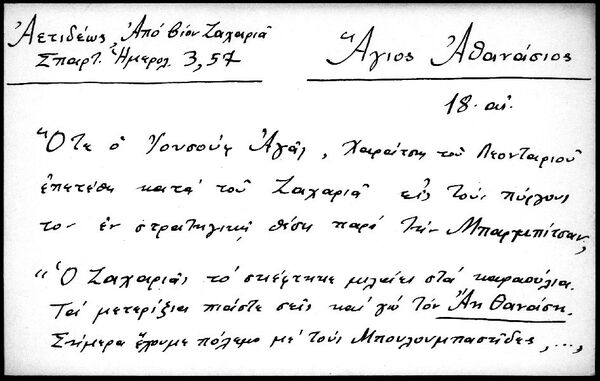 Ἀετιδέως Ἀπό βίον Ζαχαριᾶ
Σπαρτ. Ἡμερολ. 3, 57
Ἅγιος Ἀθανάσιος
18. αἰ.
"Ὅτε ὁ Ἰουσούφ Ἀγᾶς, Χαράτσης τοῦ Λεονταρίου
ἐπετέθη κατά τοῦ Ζαχαριᾶ εἰς τούς πύργους
του ἐν στρατηγικῇ θέσῃ παρά τήν Μπαρμπίτσαν,
"Ὁ Ζαχαριᾶς τό σκέφτηκε μιλάει στά καραούλια.
Τά μετερίζια πιάστε σεῖς καί γώ τόν Ἅη Θανάση.
Σήμερα ἔχουμε πόλεμο μέ τούς Μπουλουμπασῆδες, ...,